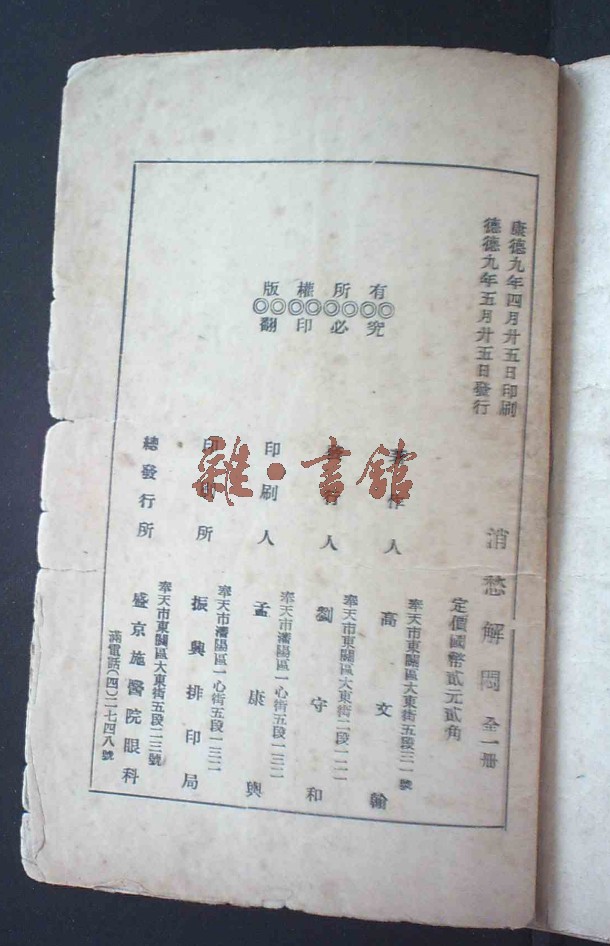 康德九年四月廿五日印刷
德德九年五月廿五日發行
消愁解悶 全一册
定價國幣貳元貳角
版權所有
◎◎◎◎◎◎◎◎
翻印必究
奉天市東關區大東街五段三一號
著作人 高文翰
奉天市東關區大東街二段一二一
發行人 劉守和
奉天市瀋陽區一心街五段一三二
印刷人 孟康興
奉天市瀋陽區一心街五段一三二
印刷所 振興排印局
奉天市東關區大東街五段二三號
總發行所 盛京施醫院眼科
滿電話(四)二七四八號
雜·書館